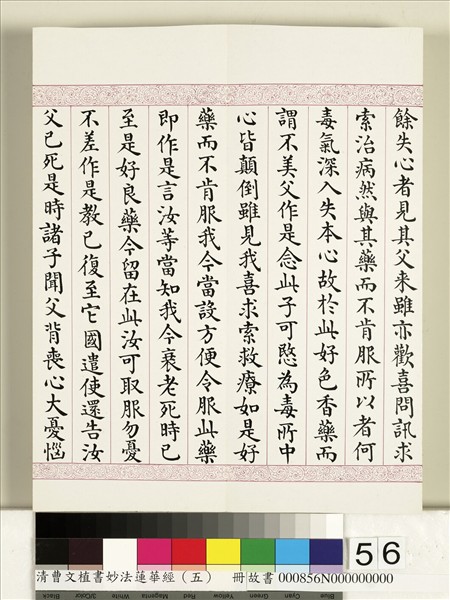 餘失心者見其父来雖亦歡喜問訊求
索治病然與其藥而不肯服所以者何
毒氣深入失本心故於此好色香藥而
謂不美父作是念此子可愍為毒所中
心皆顛倒雖見我喜求索救療如是好
藥而不肯服我今當設方便令服此藥
即作是言汝等當知我今衰老死時已
至是好良藥今留在此汝可取服勿憂
不差作是教已復至它國遣使還告汝
父已死是時諸子聞父背喪心大憂惱
56
清曹文植書妙法蓮華經（五） 冊故書 000856N000000000
Black 3/Color White Magenta Red Yellow Green Cyan Blue